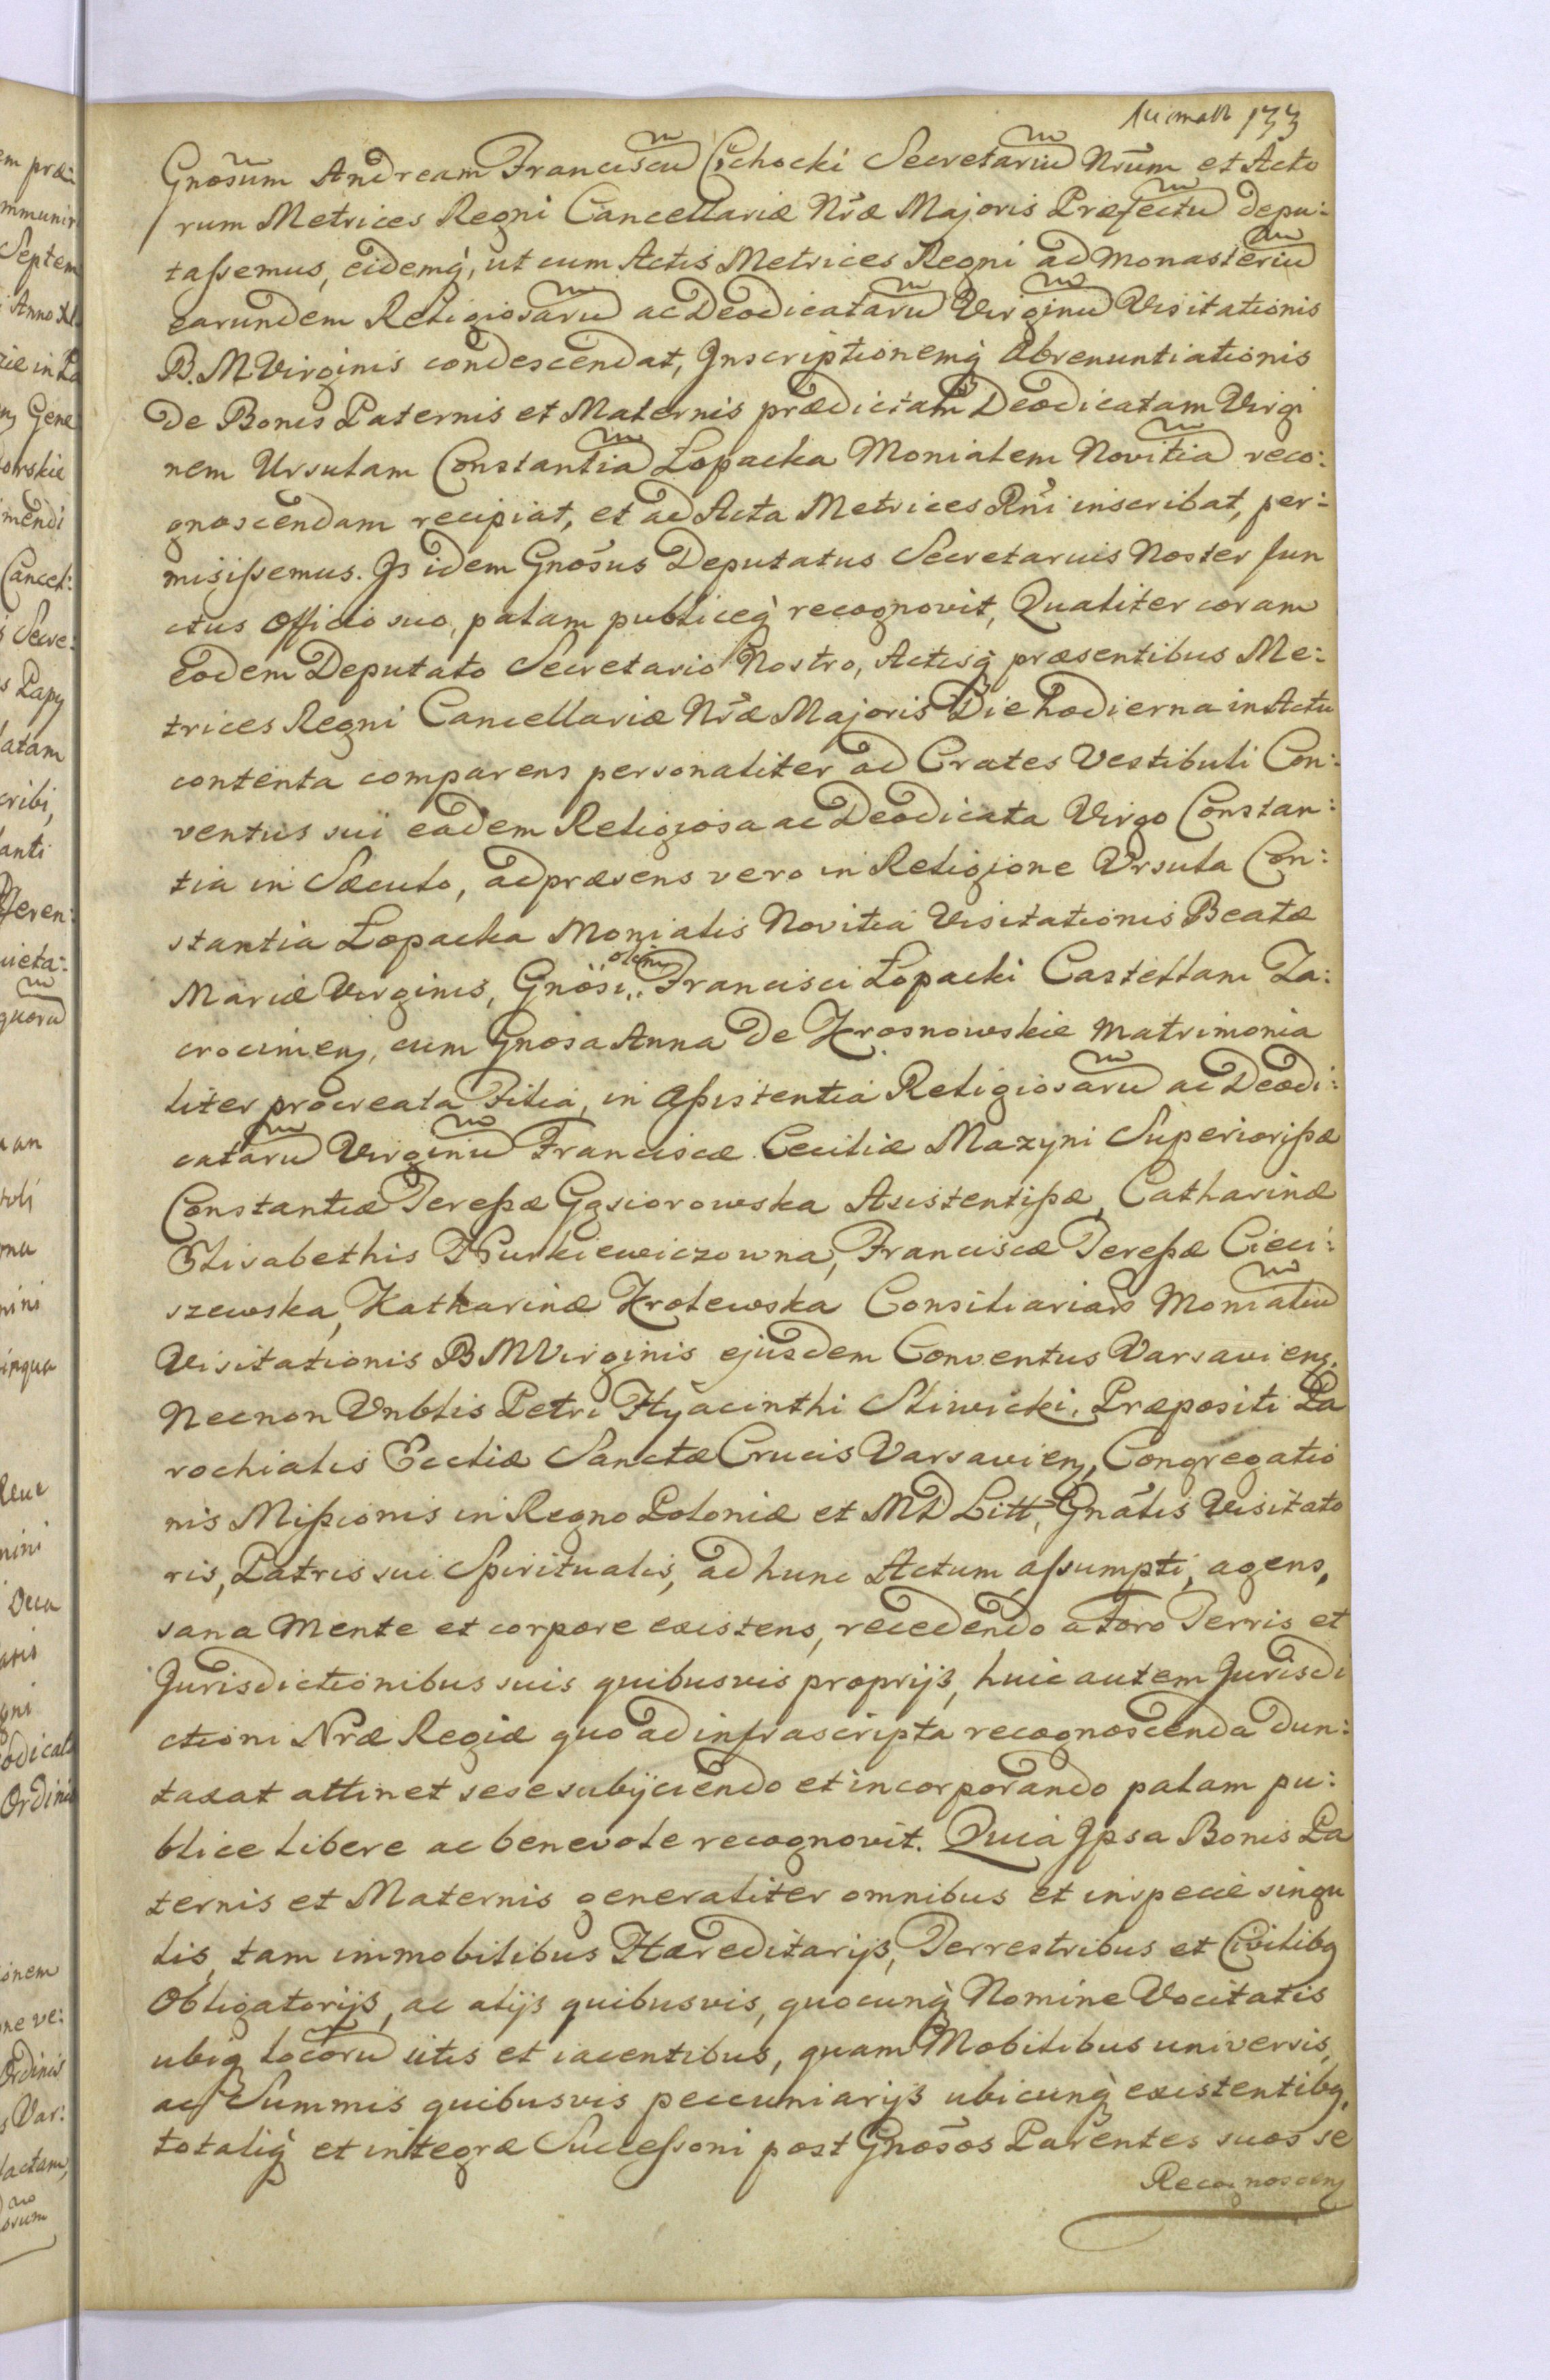 133
Gnosum Andream Franciscu Cichocki Secretariu Nrum et Acto
rum Metrices Regni Cancellariæ Nræ Majoris Præfectu depu:
tassemus, eidemq, ut cum Actis Metrices Regni ad Monasteriu
earundem Religiosaru ac Deodicataru Virginu Visitationis
B. M. Virginis condescendat, Inscriptionemq Abrenuntiationis
de Bonis Paternis et Maternis prædictam Deodicatam Virgi
nem Ursulam Constantia Łopacka Monialem Novitia reco:
gnoscendam recipiat, et ad Acta Metrices Rni inscribat, per:
misissemus. Is idem Gnosus Deputatus Secretarius Noster fun
ctus Officio suo, palam publiceq recognovit, Qualiter coram
eodem Deputato Secretario Nostro, Actisq præsentibus Me:
trices Regni Cancellariæ Nræ Majoris Die hodierna in Actu
contenta comparens personaliter ad Crates Vestibuli Con:
ventus sui eadem Religiosa ac Deodicata Virgo Constan:
tia in Sæculo, ad præsens vero in Religione Ursula Con:
stantia Łopacka Monialis Novitia Visitationis Beatæ
Mariæ Virginis, Gnosi olim Francisci Łopacki Castellani Za:
crocimen, cum Gnosa Anna de Krosnowskie Matrimonia
liter procreata Filia, in Assistentia Religiosaru ac Deodi:
cataru Virginu Franciscæ Ceciliæ Mazyni Superiorissæ
Constantiæ Teressæ Gąsiorowska Asistentissæ, Catharinæ
Elisabethis Dzurkiewiczowna, Franciscæ Teressæ Cieci:
szewska, Katharinæ Krolewska Consiliarias Monialiu
Visitationis B M Virginis ejusdem Conventus Varsavien,
Necnon Vnblis Petri Hyacinthi Sliwicki, Præpositi Pa
rochialis Eccliæ Sanctæ Crucis Varsavien, Congregatio
nis Missionis in Regno Poloniæ et M D Litt, Gnalis Visitato
ris, Patris sui Spiritualis, ad hunc Actum assumpti, agens,
sana Mente et corpore existens, recedendo a Foro Terris et
Jurisdictionibus suis quibusvis proprijs, huic autem Jurisdi
ctioni Nræ Regiæ quo ad infrascripta recognoscenda dun:
taxat attinet sese subijciendo et incorporando palam pu:
blice libere ac benevole recognovit. Quia Ipsa Bonis Pa
ternis et Maternis generaliter omnibus et in specie singu
lis, tam immobilibus Hæreditarijs, Terrestribus et Civilibq
Obligatorijs, ac alijs quibusvis, quocunq Nomine Vocitatis
ubiq locoru sitis et iacentibus, quam Mobilibus universis,
ac Summis quibusvis peccuniarijs ubicunq existentibq,
totaliq et integræ Successoni post Gnosos Parentes suos se
Recognoscen